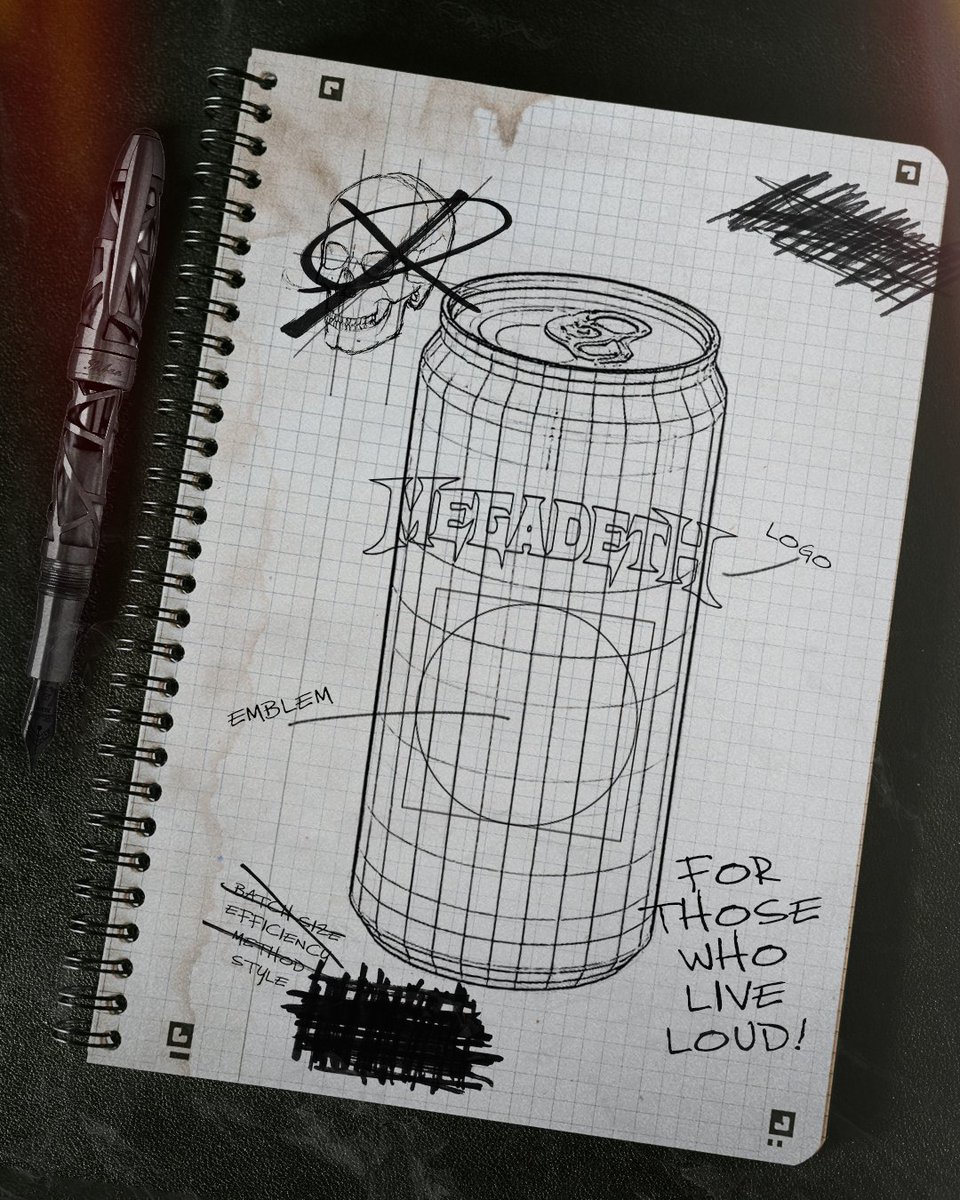 MEGADETH
LOGO
EMBLEM
BATCH SIZE
EFFICIENCY
METHOD
STYLE
FOR
THOSE
WHO
LIVE
LOUD!